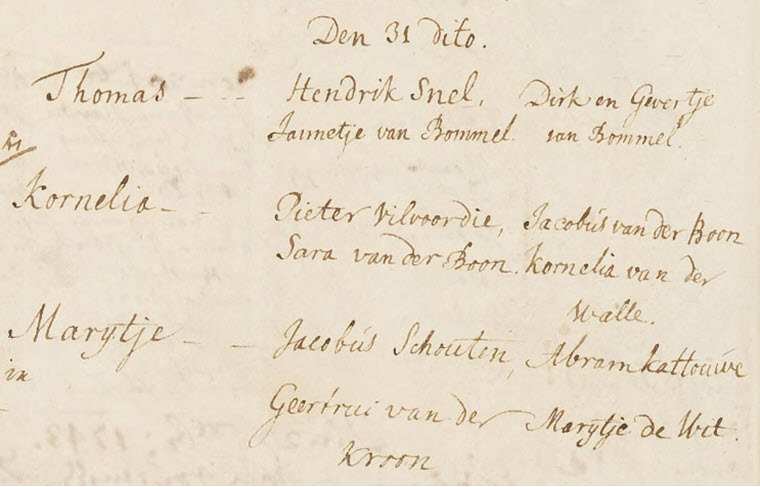 Den 31 dito.
Thomas - - - Hendrik Snel, Dirk en Gevertje
Jannetje van Bommel. van Bommel.
Kornelia - - Pieter Vilvoordie, Jacobús van der Boon
Sara van der Boon. Kornelia van der
Walle.
Marytje - - Jacobús Schouten, Abram kattoúwe
in
Geertrui van der Marytje de Wit.
Kroon